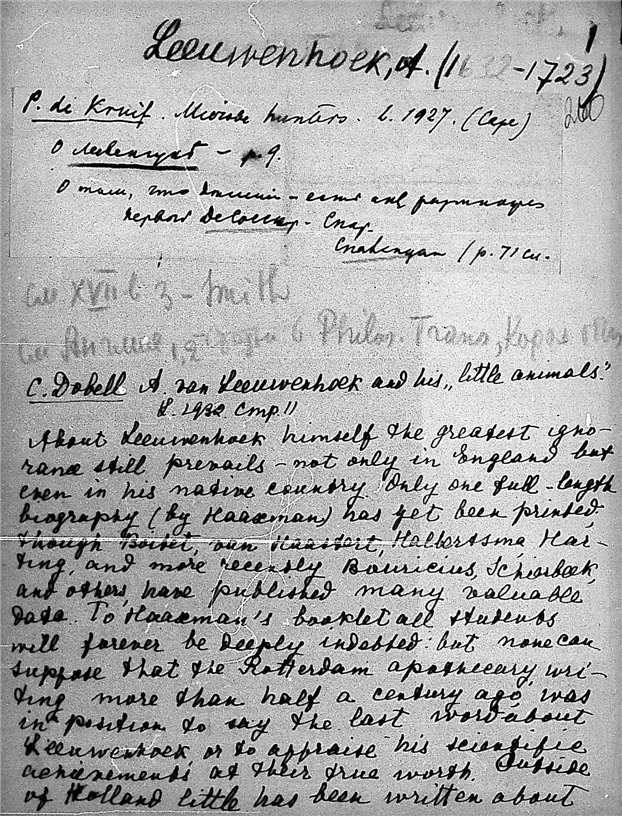 Leeuwenhoek, A. (1632-1723)
1
260
P. de Kruif. Microbe hunters. L. 1927. (Cape)
О Левенгуке – p. 9.
О том, что
первого
(p. 71 сл.
см XVII в 3 – Smith
см Англия, 1,2 в Philos. Trans, Корол
C. Dobell A. van Leeuwenhoek and his „little animals".
L. 1932 стр. 11
About Leeuwenhoek himself the greatest igno-
rance still prevails – not only in England but
even in his native country. Only one full-length
biography (by Haaxman) has yet been printed,
though Boitet, van Haastert, Halbertsma, Har-
ting, and more recently Bouricius, Schierbeek,
and others, have published many valuable
data. To Haaxman's booklet all students
will forever be deeply indebted: but none can
suppose that the Rotterdam apothecary, wri-
ting more than half a century ago, was
in position to say the last word about
Leeuwenhoek or to appraise his scientific
achievements at their true worth. Outside
of Holland little has been written about